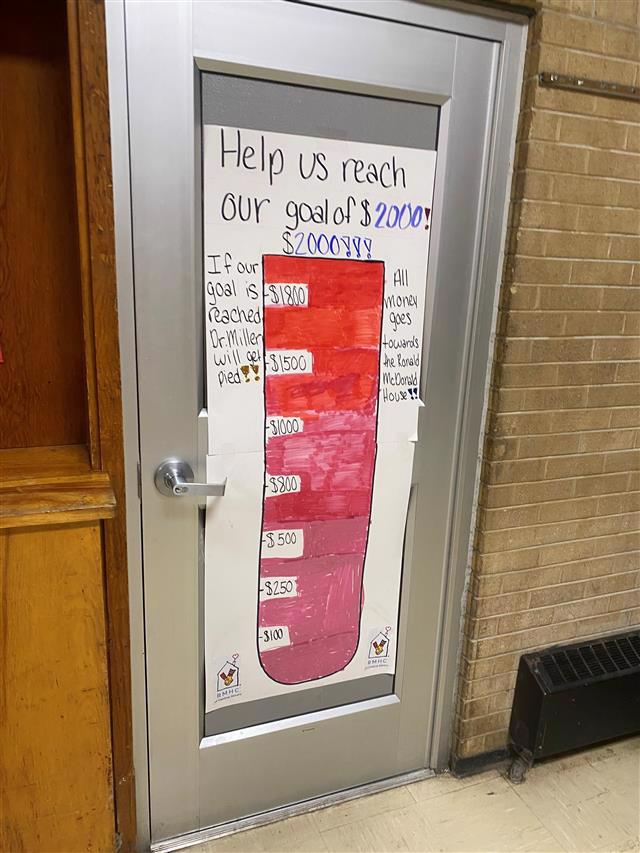 Help us reach
our goal of $2000!
$2000!!!
If our
goal is
reached
Dr. Miller
will get
pied!!
All
money
goes
towards
the Ronald
McDonald
House!!
-$1800
-$1500
-$1000
-$800
-$500
-$250
-$100
RMHC
RMHC